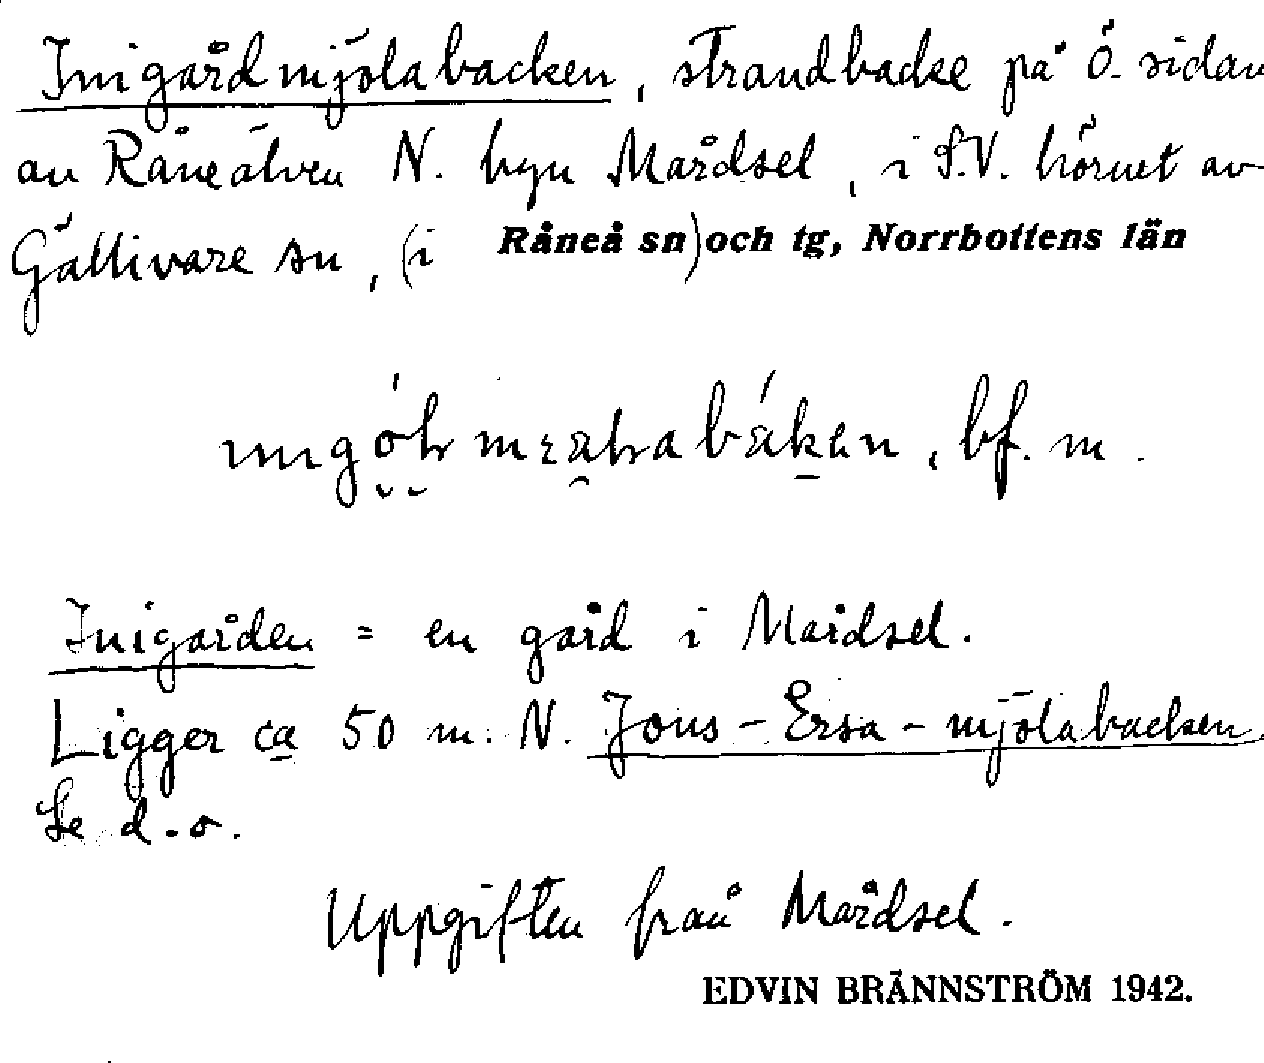 Inigårdmjölabacken, strandbacke på Ö. sidan
av Råneälven N. byn Mårdsel, i S.V. hörnet av
Gällivare sn, (i Råneå sn) och tg, Norrbottens län
bf. m.
Inigården = en gård i Mårdsel.
Ligger ca 50 m. N. Jons-Ersa-mjölabacken.
Se d.o.
Uppgiften från Mårdsel.
EDVIN BRÄNNSTRÖM 1942.